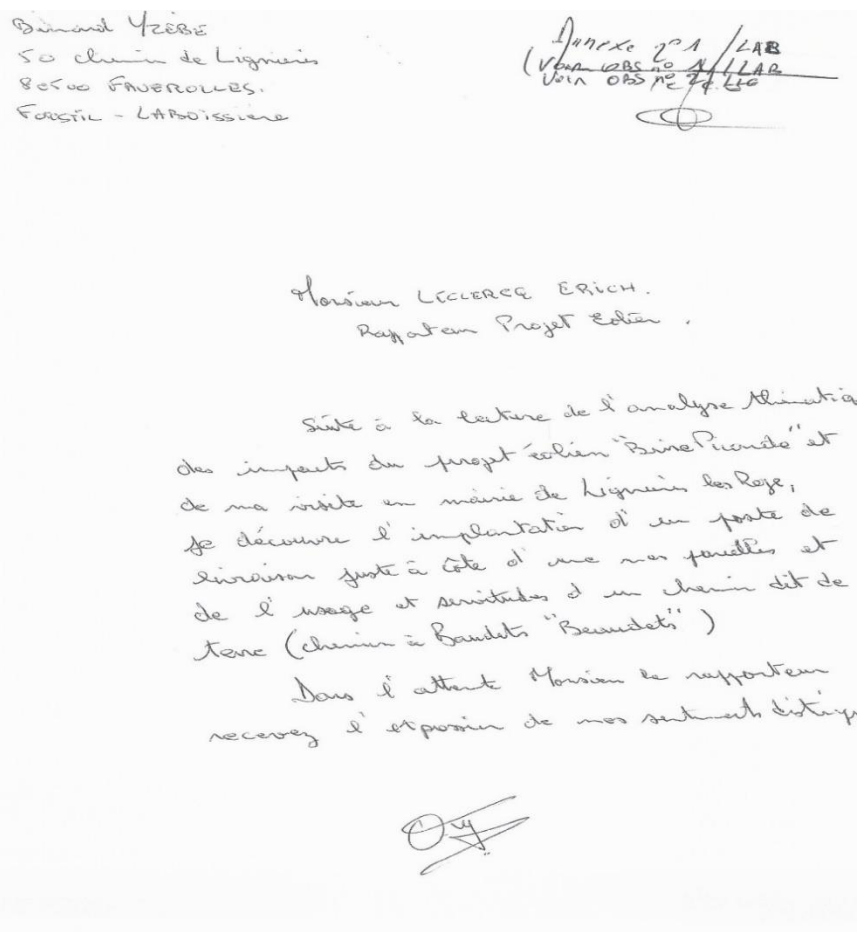 Bernard YZEBE
50 chemin de Lignieres
80500 FAVEROLLES.
FORSTIL - LABOISSIERE
Annexe n°1 / LAB
(VOIR OBS n° 1/LAB
VOIR OBS n° 2
Monsieur LECLERCQ ERICH.
Rapporteur Projet Eolien.
Suite à la lecture de l'analyse thématiq
des impacts du projet éolien "Brise Picarde" et
de ma visite en mairie de Lignieres les Roye,
je découvre l'implantation d'un poste de
livraison juste à côté d'une mes parcelles et
de l'usage et servitudes d'un chemin dit de
terre (chemin à Baudets "Beaudets")
Dans l'attente Monsieur le rapporteur
recevez l'expression de mes sentiments distingu